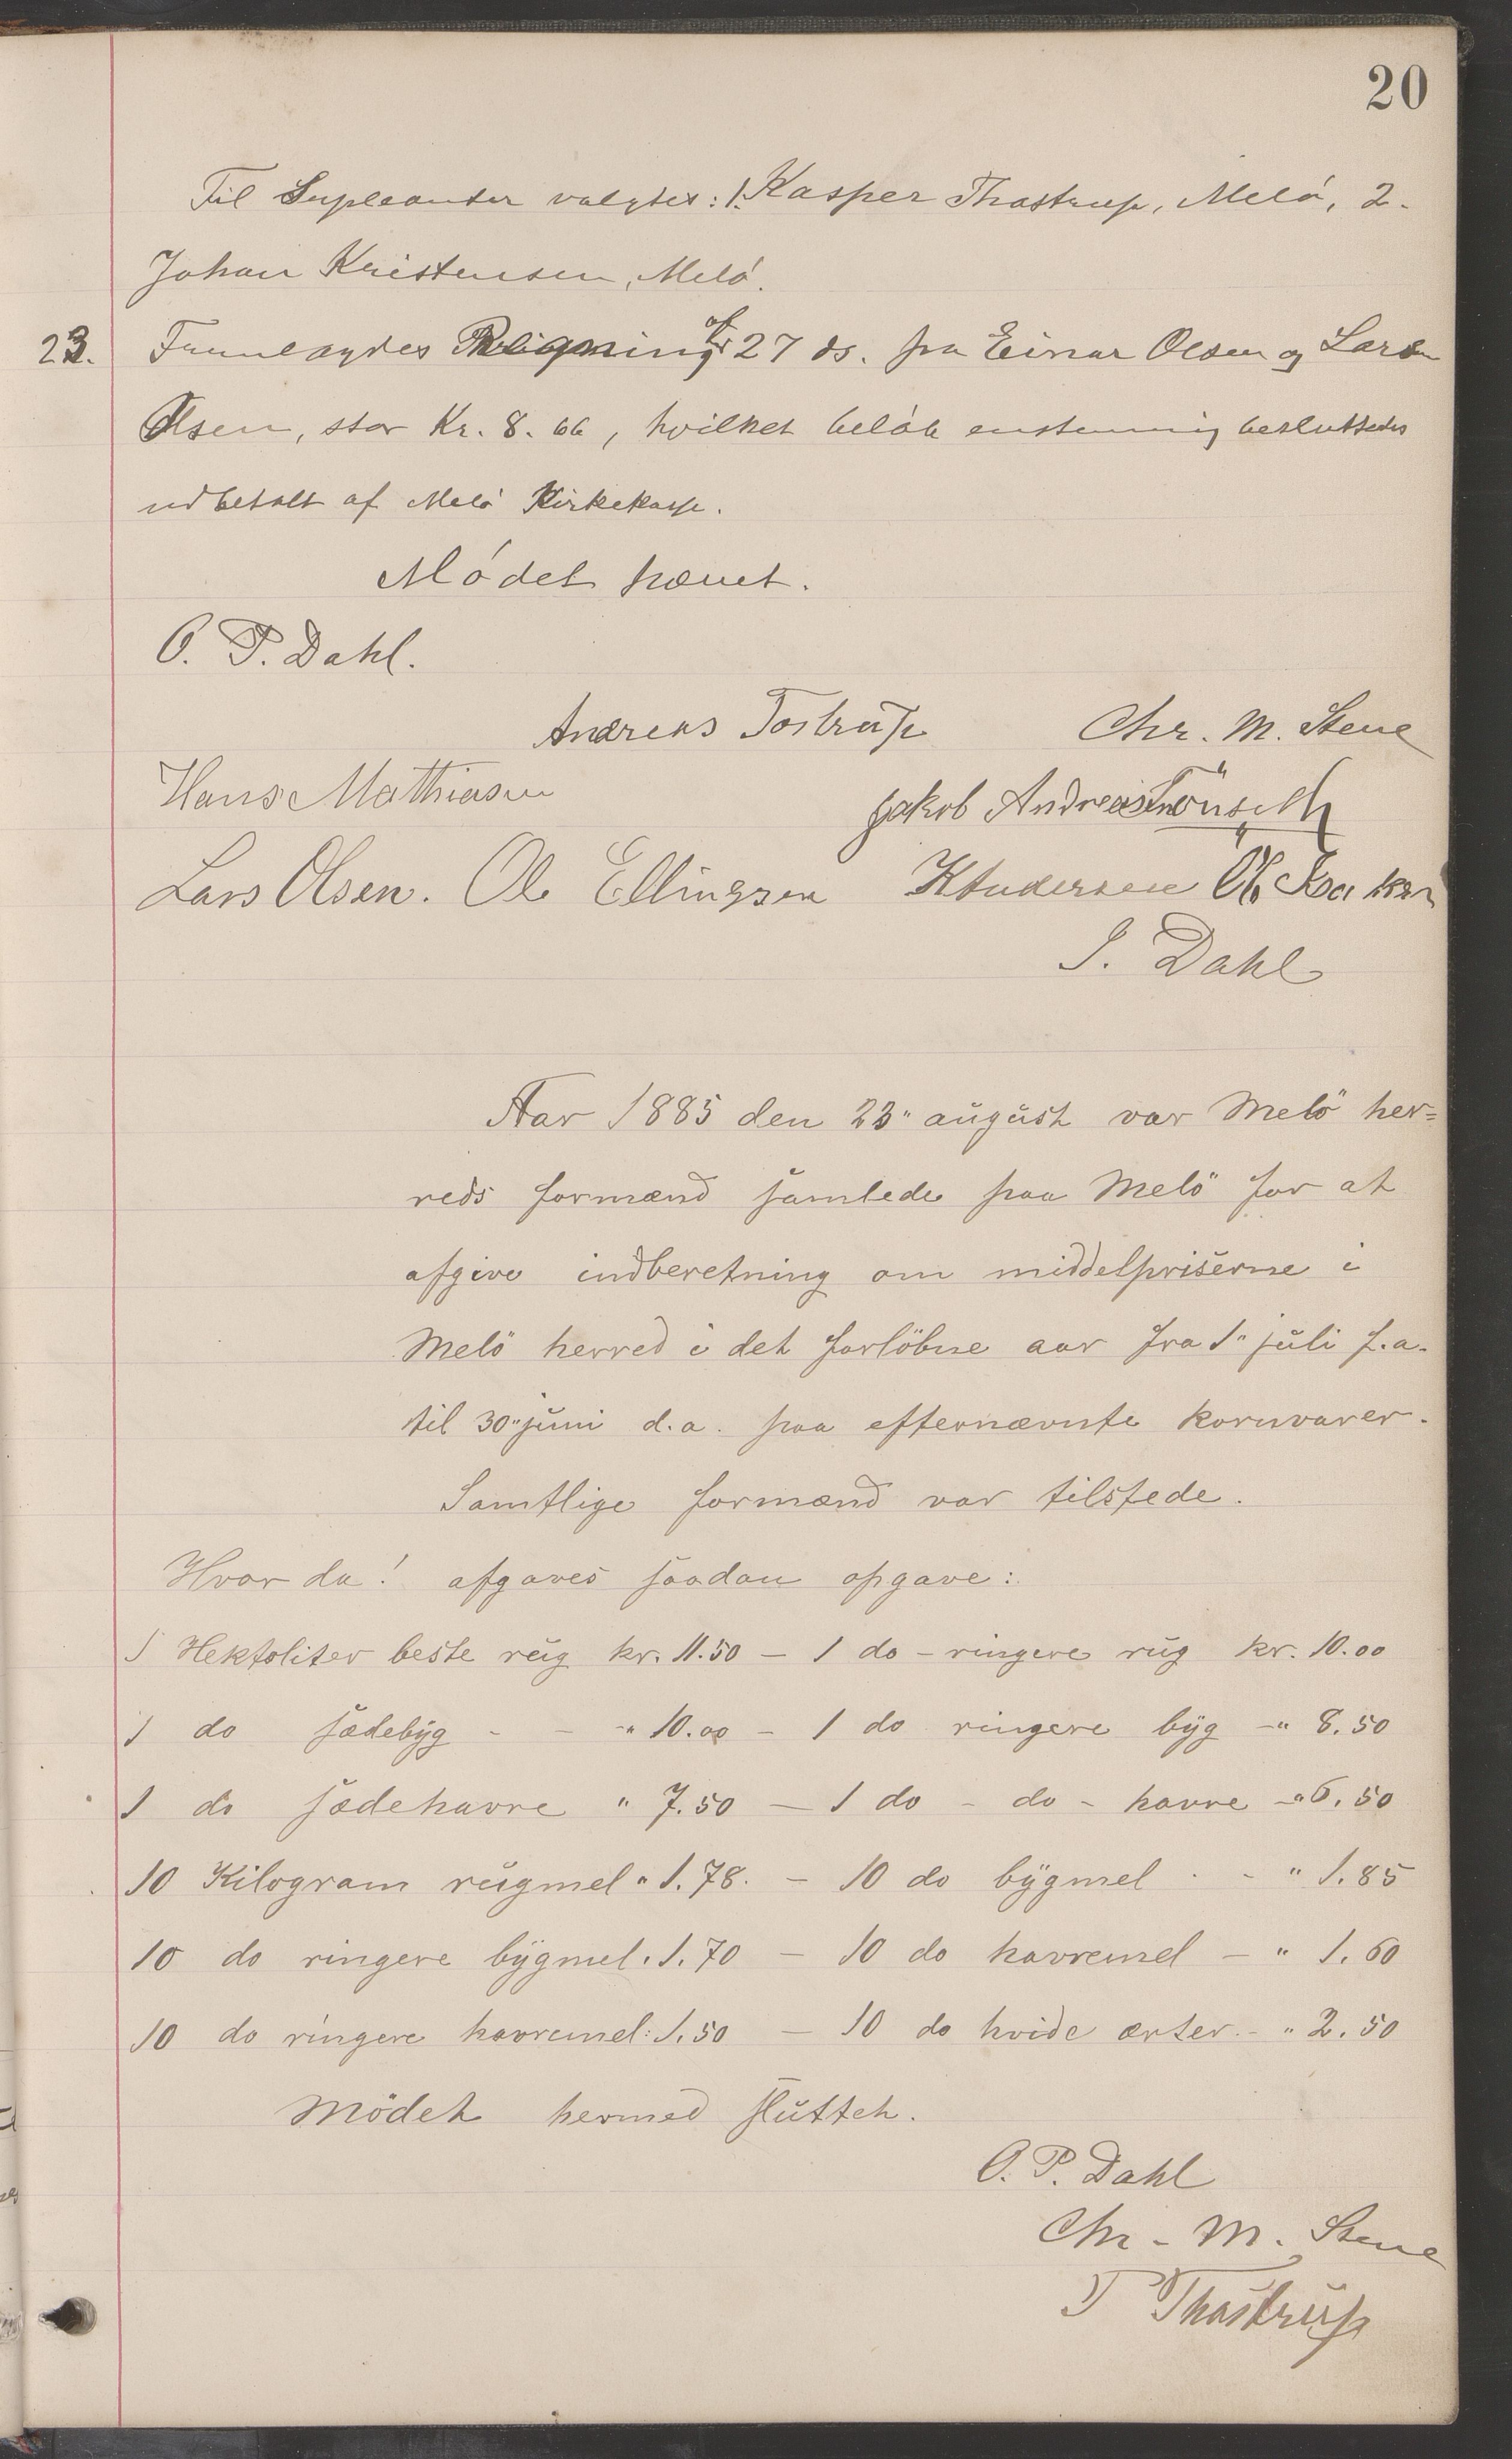 20
Til Supleanter valgtes: 1. Kasper Thostrup, Melö, 2.
Johan Kristensen, Melö.
23. Fremlagdes Regning af 27 ds. fra Einar Olsen og Lars
Olsen, stor Kr. 8.66, hvilket belöb enstemmig besluttedes
udbetalt af Melö Kirkekasse.
Mödet hævet.
O. P. Dahl.
Andreas Tostrup Chr. M. Stene
Hans Mathiasen Jakob Andreas
Lars Olsen. Ole Ellingsen K Andersen
J. Dahl
Aar 1885 den 23" august var Melö her=
reds formænd samlede paa Melö for at
afgive indberetning om middelpriserne i
Melö herred i det forlöbne aar fra 1" juli f.a.
til 30" juni d.a. paa efternævnte kornvarer.
Samtlige formænd var tilstede.
Hvor da! afgaves saadan opgave:
1 Hektoliter beste rug kr. 11.50 – 1 do – ringere rug kr. 10.00
1 do sædebyg - - -" 10.00 – 1 do ringere byg –" 8.50
1 do sædehavre " 7.50 – 1 do – do – havre –" 6.50
10 Kilogram rugmel " 1.78. – 10 do bygmel - - " 1.85
10 do ringere bygmel " 1.70 – 10 do havremel – " 1.60
10 do ringere havremel " 1.50 – 10 do hvide erter. – " 2.50
Mödet hermed sluttet.
O. P. Dahl
Chr. M. Stene
T Thostrup